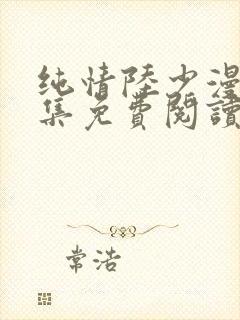 纯情陸少漫
集免費閱讀
常浩